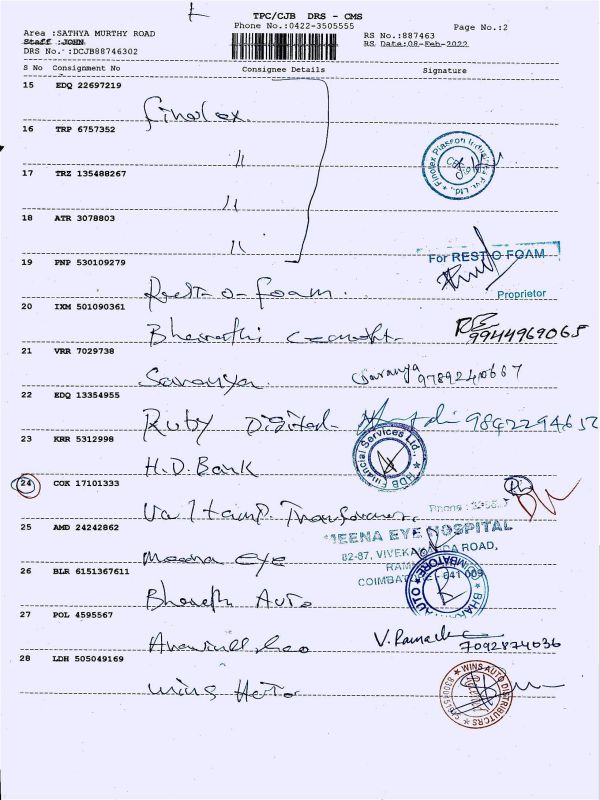 TPC/CJB DRS - CMS
Phone No.:0422-3505555
Page No.:2
Area :SATHYA MURTHY ROAD
Staff :JOHN
DRS No.:DCJB88746302
RS No.:887463
RS Date:08-Feb-2022
S No Consignment No Consignee Details Signature
15 EDQ 22697219
Finolex
16 TRP 6757352
"
Finolex Plasson Industries Pvt. Ltd.,
17 TRZ 135488267
"
18 ATR 3078803
"
19 PNP 530109279
For REST O FOAM
Rest-o-foam.
Proprietor
20 IXM 501090361
Bharathi
9944969065
21 VRR 7029738
Saravya
Saranya 9789240667
22 EDQ 13354955
Ruby 9842294652
23 KRR 5312998
HDB Financial Services Ltd.,
H.D. Bank
24 COK 17101333
Phone :
25 AMD 24242862
MEENA EYE HOSPITAL
82-87, ROAD,
Meena EYE
COIMBATORE - 641 009
26 BLR 6151367611
Bharath Auto
27 POL 4595567
7092874036
28 LDH 505049169
WINS AUTO DISTRIBUTORS
wins Auto